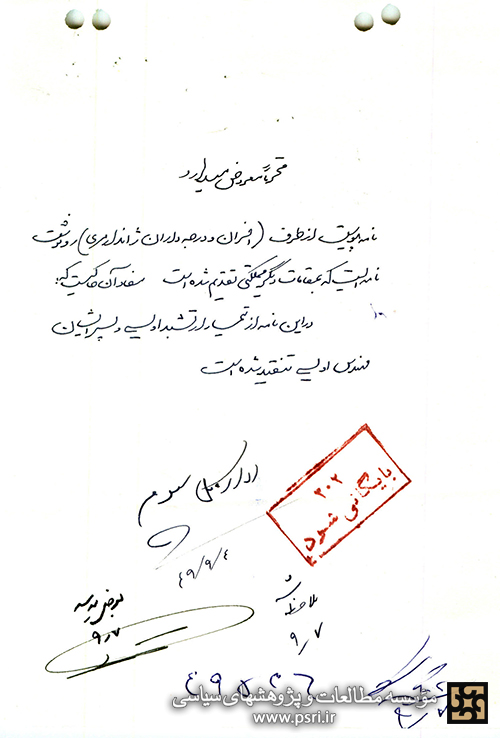 محترماً معروض میدارد
نامه پیوست از طرف (افسران و درجه داران ژاندارمری) رونوشت
نامه ایست که بمقامات دیگر مملکتی تقدیم شده است مفاد آن حاکیست که:
در این نامه از تیمسار ارتشبد اویسی و پسر ایشان
مهندس اویسی تنقید شده است
اداره کل سوم
۴۹/۹/۴
۲۰۲
بایگانی شود
ملاحظه شد
۹/۷
بعرض میرسد
۹/۷
مؤسسه مطالعات و پژوهشهای سیاسی
www.psri.ir